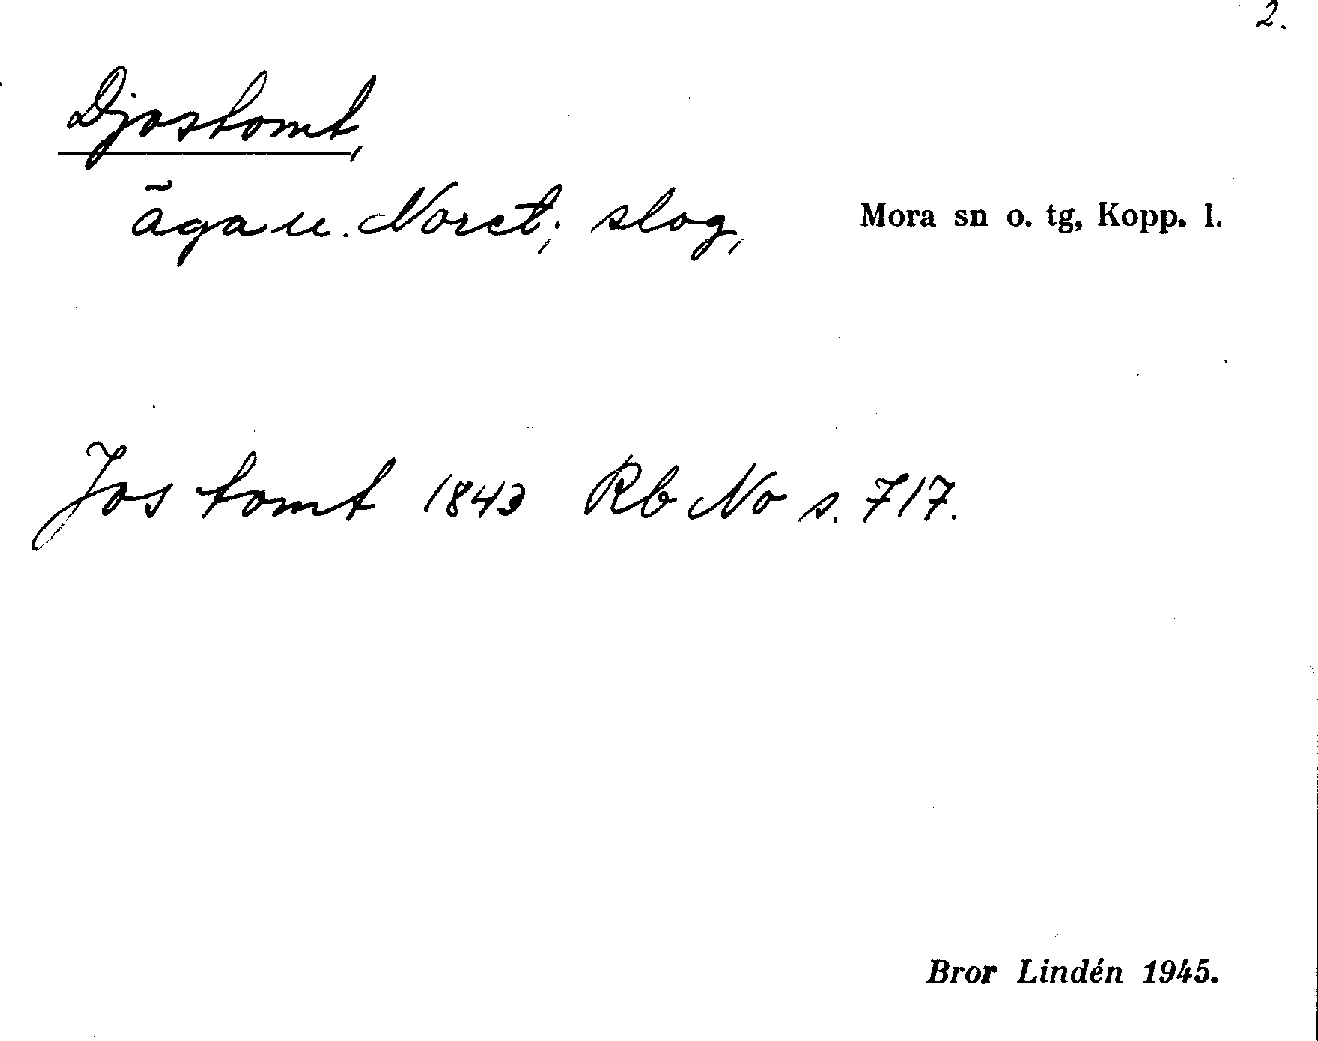 2.
Djostomt,
äga u. Noret; slog,
Mora sn o. tg, Kopp. l.
Jos tomt 1843 Rb No s. 717.
Bror Lindén 1945.